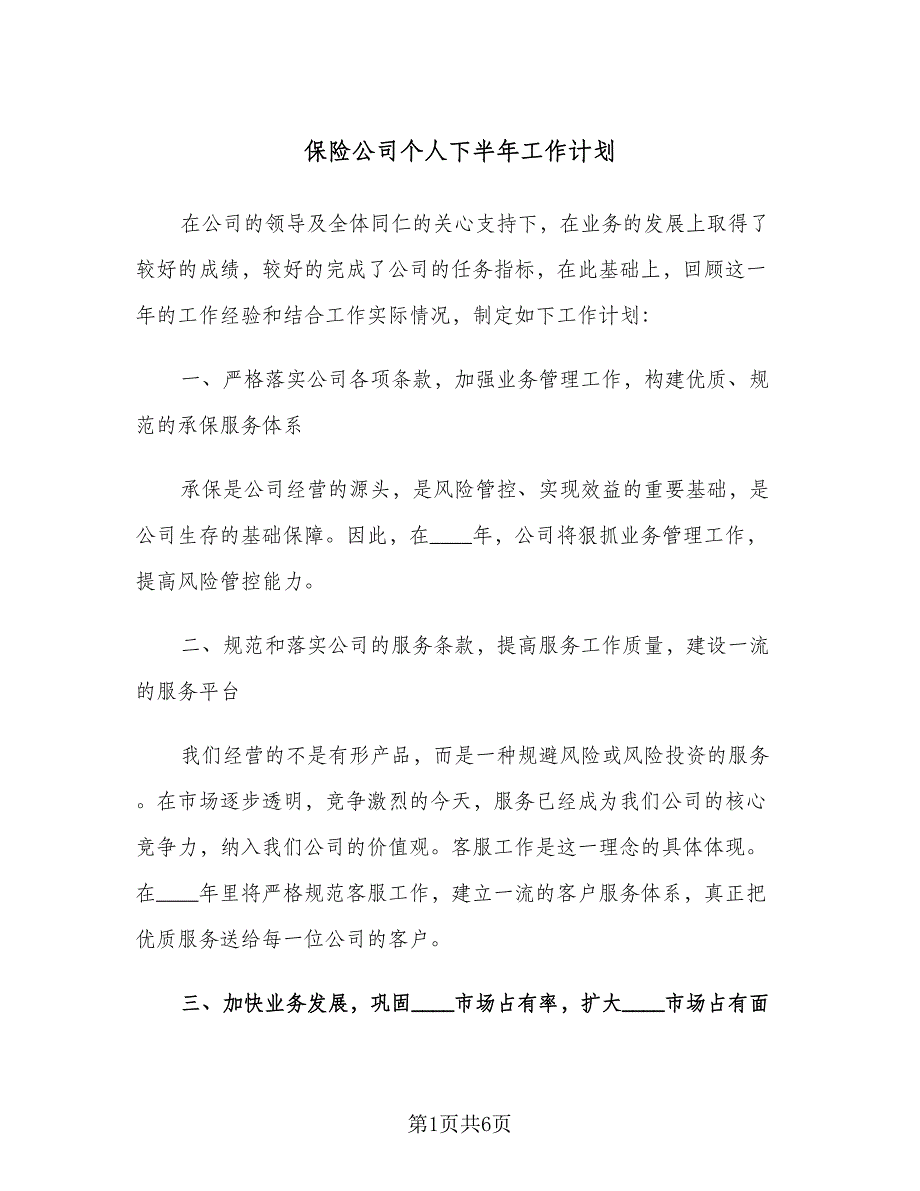 保险公司个人下半年工作计划
在公司的领导及全体同仁的关心支持下，在业务的发展上取得了
较好的成绩，较好的完成了公司的任务指标，在此基础上，回顾这一
年的工作经验和结合工作实际情况，制定如下工作计划：
一、严格落实公司各项条款，加强业务管理工作，构建优质、规
范的承保服务体系
承保是公司经营的源头，是风险管控、实现效益的重要基础，是
公司生存的基础保障。因此，在____年，公司将狠抓业务管理工作，
提高风险管控能力。
二、规范和落实公司的服务条款，提高服务工作质量，建设一流
的服务平台
我们经营的不是有形产品，而是一种规避风险或风险投资的服务
。在市场逐步透明，竞争激烈的今天，服务已经成为我们公司的核心
竞争力，纳入我们公司的价值观。客服工作是这一理念的具体体现。
在____年里将严格规范客服工作，建立一流的客户服务体系，真正把
优质服务送给每一位公司的客户。
三、加快业务发展，巩固____市场占有率，扩大____市场占有面
第1页共6页